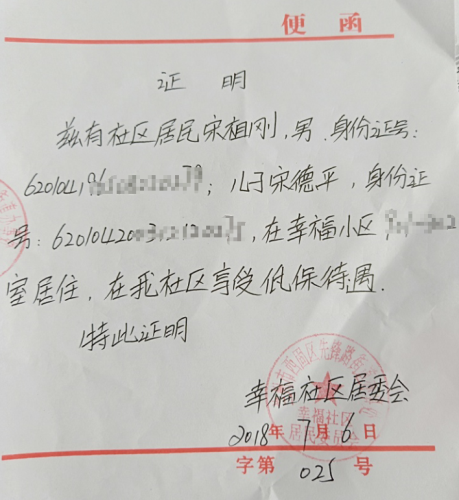 便 函
证 明
兹有社区居民宋相刚,男.身份证号:
620104196 79;儿子宋德平,身份证
号:6201042003 ,在幸福小区
室居住,在我社区享受低保待遇.
特此证明
幸福社区居委会
2018年7月6日
字第 025 号
幸福社区
居民委员会